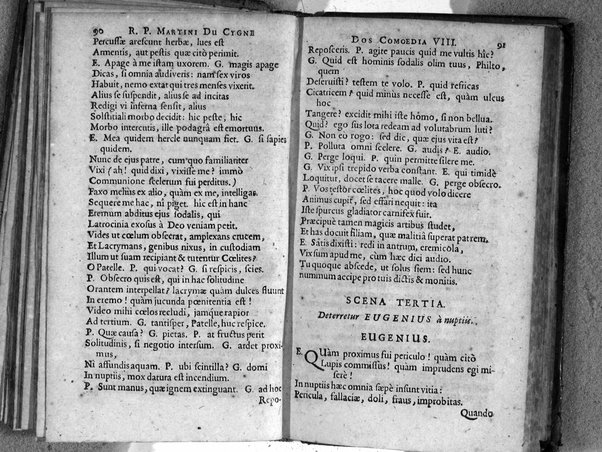 90 R. P. MARTINI DU CYGNE
Percussæ arescunt herbæ, lues est
Armentis, aut pestis quæ citò perimit.
E. Apage à me istam uxorem. G. magis apage
Dicas, si omnia audiveris: nam sex viros
Habuit, nemo extat qui tres menses vixerit.
Alius se suspendit, alius se ad incitas
Redigi vi inferna sensit, alius
Solstitiali morbo decidit: hic peste, hic
Morbo intercutis, ille podagrâ est emortuus.
E. Mea quidem hercle nunquam fiet. G. si sapies
quidem.
Nunc de ejus patre, cum quo familiariter
Vixi (ah! quid dixi, vixisse me? immò
Communione scelerum fui perditus.)
Faxo meliùs ex alio, quàm ex me, intelligas.
Sequere me hac, ni piget. hic est in hanc
Eremum abditus ejus sodalis, qui
Latrocinia exosus à Deo veniam petit.
Vides ut cælum obsecrat, amplexans crucem,
Et Lacrymans, genibus nixus, in custodiam
Illum ut suam recipiant & tutentur Cœlites?
O Patelle. P. qui vocat? G. si respicis, scies.
P. Obsecro quis est, qui in hac solitudine
Orantem interpellat? lacrymæ quàm dulces fluunt
In eremo! quàm jucunda pœnitentia est!
Video mihi cœlos recludi, jamque rapior
Ad tertium. G. tantisper, Patelle, huc respice.
P. Quæ causa? G. pietas. P. at fructus perit
Solitudinis, si negotio intersum. G. ardet proxi-
mus,
Ni affundis aquam. P. ubi scintilla? G. domi
In nuptiis, mox datura est incendium.
P. Sunt manus, quæ ignem extinguant. G. ad hoc
Repo-
DOS COMOEDIA VIII. 91
Reposceris. P. agite paucis quid me vultis hîc?
G. Quid est hominis sodalis olim tuus, Philto,
quem
Deseruisti? testem te volo. P. quid refricas
Cicatricem? quid minùs necesse est, quàm ulcus
hoc
Tangere? excidit mihi iste homo, si non bellua.
Quid? ego sus lota redeam ad volutabrum luti?
G. Non eo rogo: sed dic, quæ ejus vita est?
P. Polluta omni scelere. G. audis? E. audio.
G. Perge loqui. P. quin permitte silere me.
G. Vix ipsi trepido verba constant. E. qui timidè
Loquitur, docet se tacere malle. G. perge obsecro.
P. Vos testor cœlites, hoc quod volo dicere
Animus cupit, sed effari nequit: ita
Iste spurcis gladiator carnifex fuit.
Præcipuè tamen magicis artibus studet,
Et has docuit filiam, quæ malitiâ superat patrem.
E. Satis dixisti: redi in antrum, eremicola,
Vix sum apud me, cùm hæc dici audio.
Tu quoque abscede, ut solus siem: sed hunc
nummum accipe pro tuis dictis & monitis.
SCENA TERTIA.
Deterretur EUGENIUS à nuptiis.
EUGENIUS.
E. QUàm proximus fui periculo! quàm citò
Lupis commissus! quàm imprudens egi mi-
serè!
In nuptiis hæc omnia sæpè insunt vitia:
Pericula, fallaciæ, doli, fraus, improbitas.
Quando